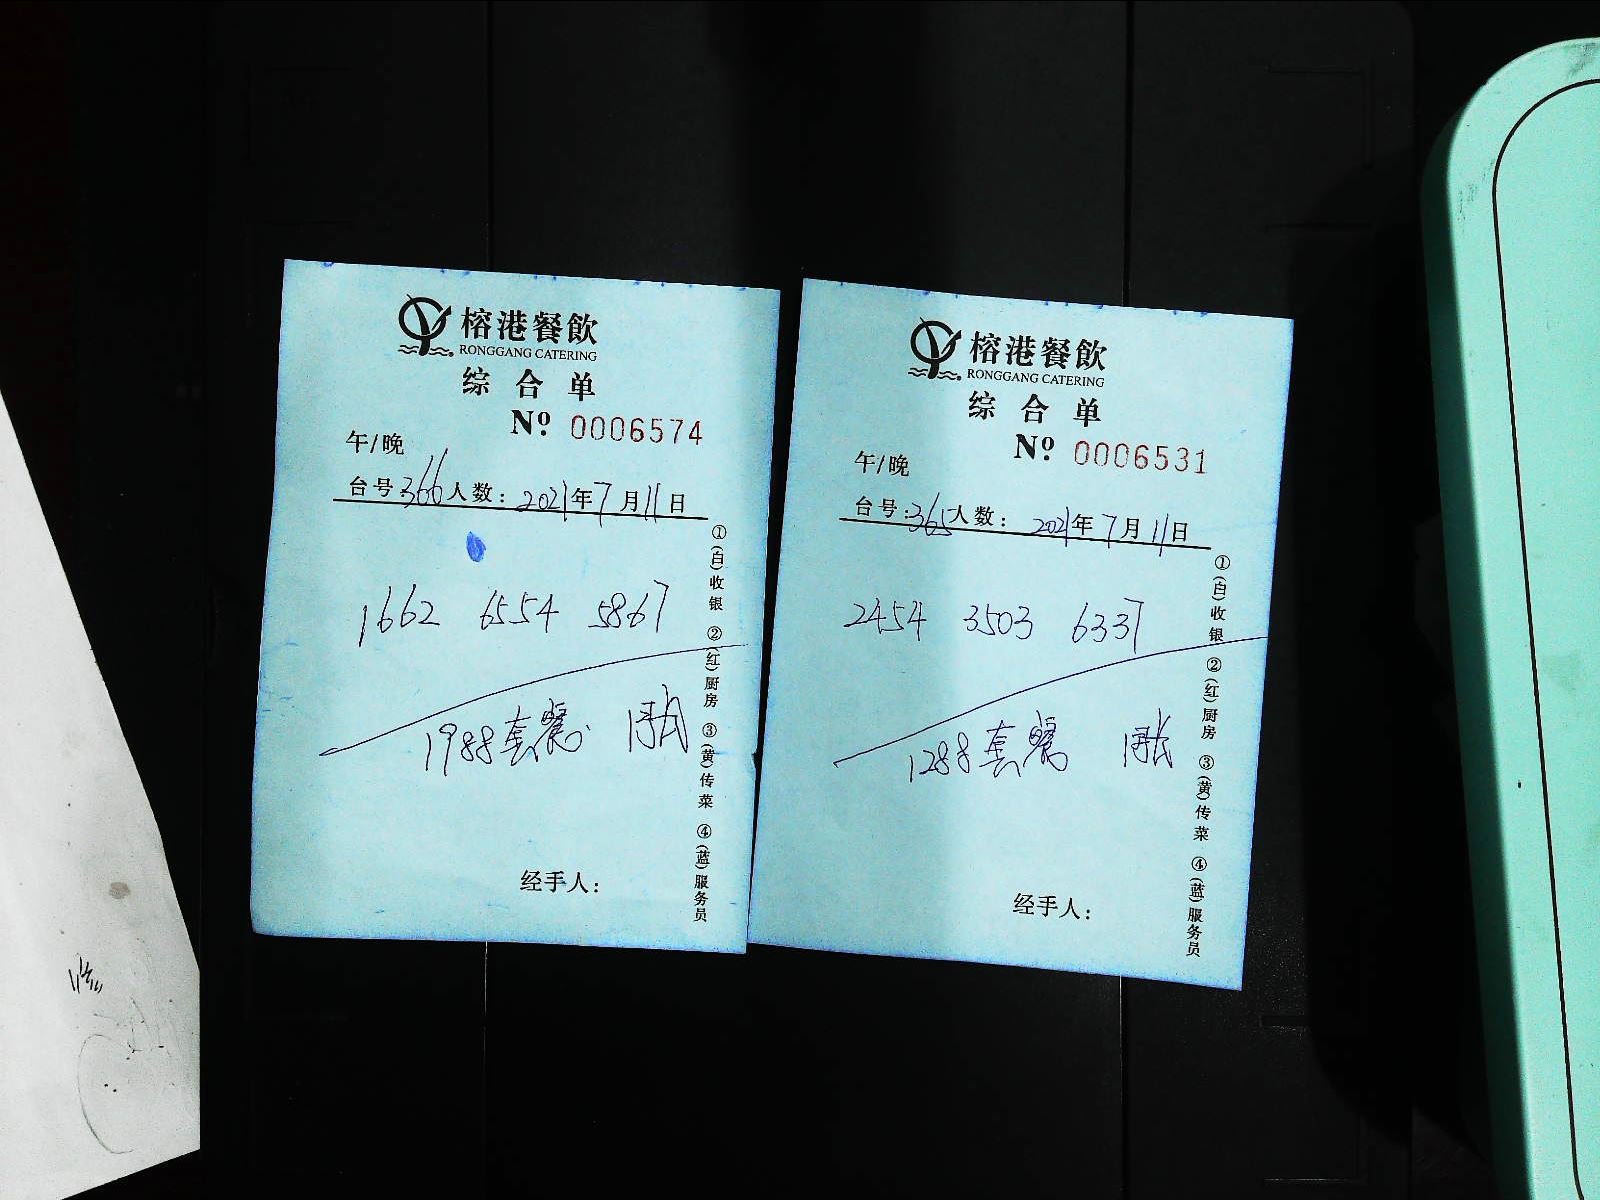 榕港餐飲
RONGGANG CATERING
综合单
Nº 0006574
午/晚
台号:366人数: 2021年7月11日
1662 6554 5867
1988套餐
经手人:
①(白)收银 ②(红)厨房 ③(黄)传菜 ④(蓝)服务员
榕港餐飲
RONGGANG CATERING
综合单
Nº 0006531
午/晚
台号:365人数: 2021年7月11日
2454 3503 6337
1288套餐
经手人:
①(白)收银 ②(红)厨房 ③(黄)传菜 ④(蓝)服务员